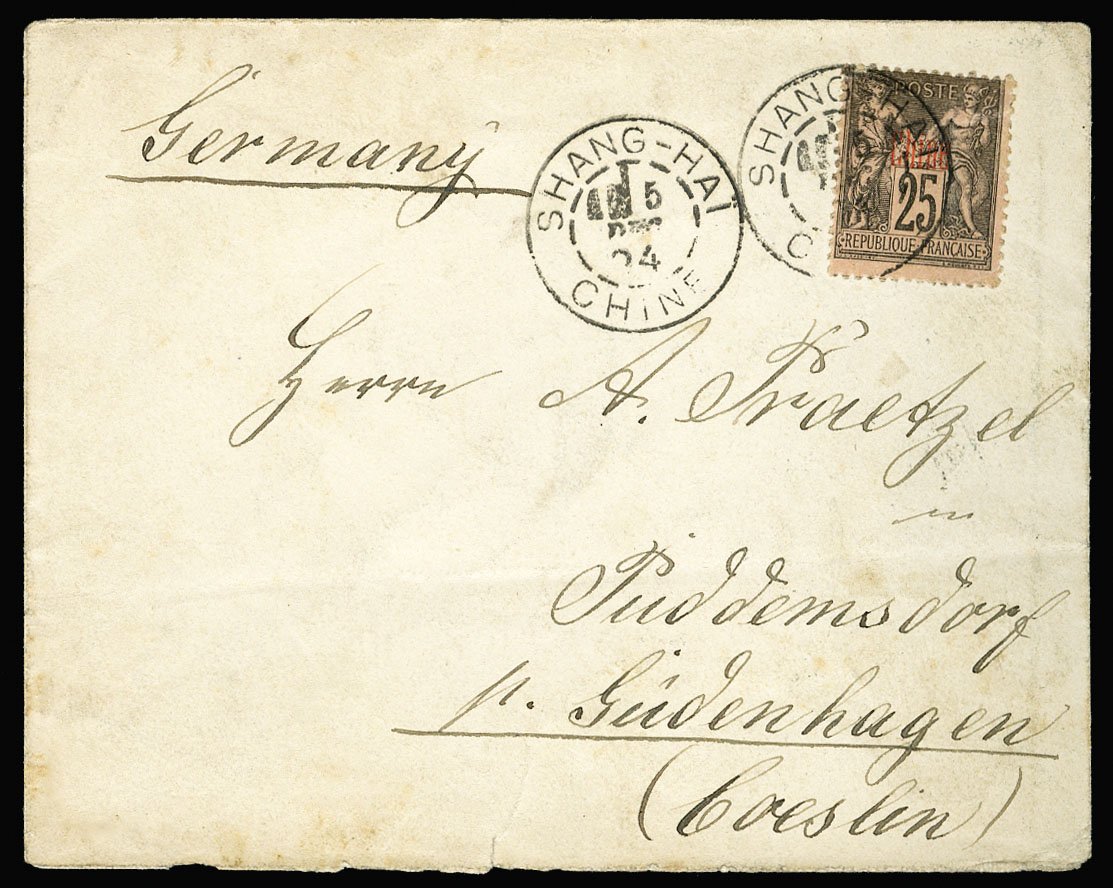 Germany
SHANG-HAÏ
5
CHINE
SHANG-H
POSTE
Chine
25
REPUBLIQUE FRANCAISE
Herrn A. Praetzel
in
Puddemsdorf
p. Güdenhagen
(Coeslin)